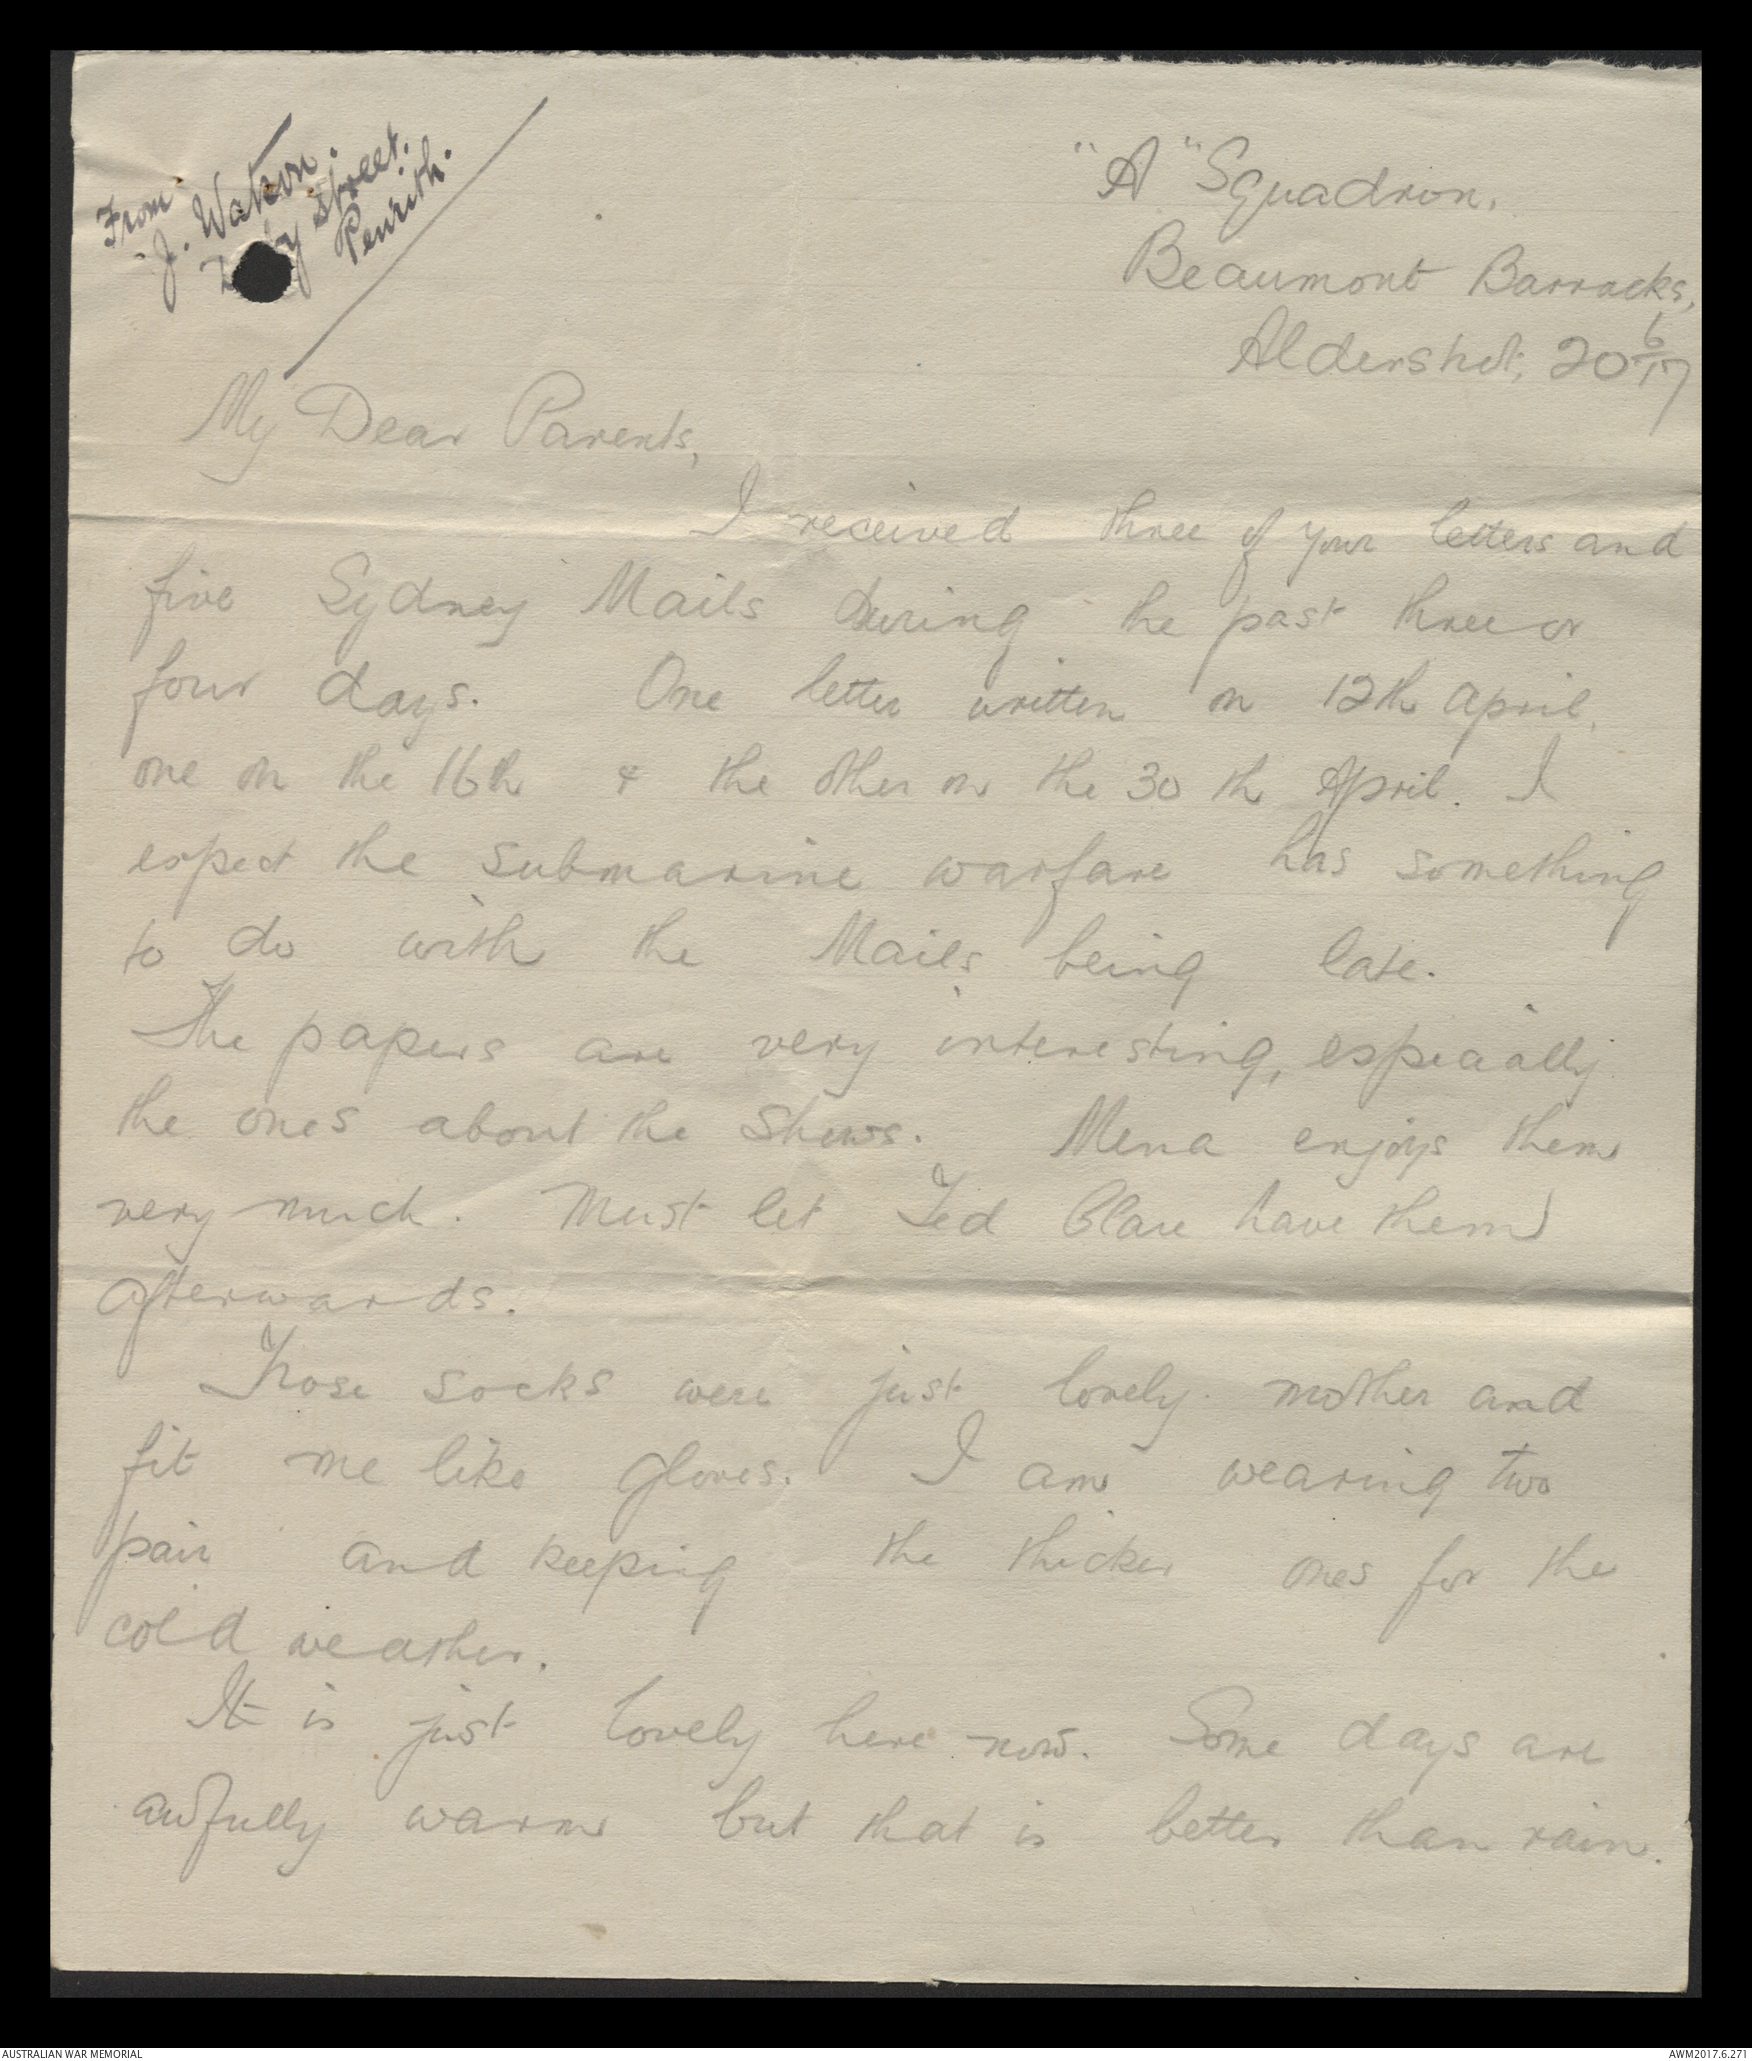 From
J. Watson.
y Street.
Penrith.
"A" Squadron,
Beaumont Barracks,
Aldershot, 20 6/17
My Dear Parents,
I received three of your letters and
five Sydney Mails during the past three or
four days. One letter written on 12th April,
one on the 16th & the other on the 30th April. I
expect the submarine warfare has something
to do with the Mails being late.
The papers are very interesting, especially
the ones about the shows. Mena enjoys them
very much. Must let Ted Clare have them
afterwards.
Those socks were just lovely mother and
fit me like gloves. I am wearing two
pair and keeping the thicker ones for the
cold weather.
It is just lovely here now. Some days are
awfully warm but that is better than rain.
AUSTRALIAN WAR MEMORIAL
AWM2017.6.271